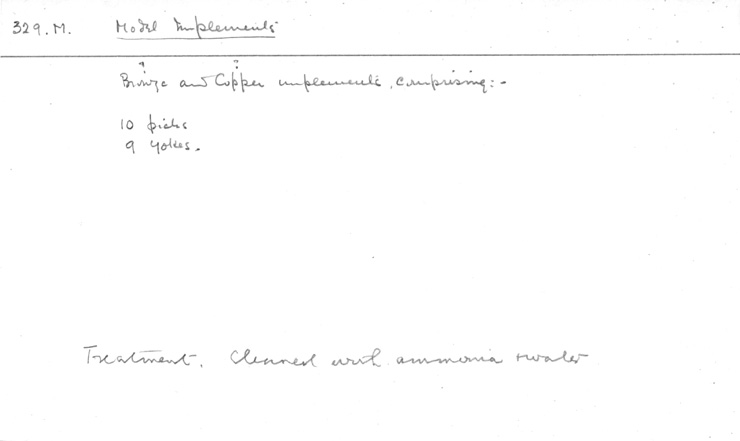 329. M. Model Implements
? ?
Bronze and Copper implements, comprising:-
10 picks
9 yokes.
Treatment. Cleaned with ammonia & water